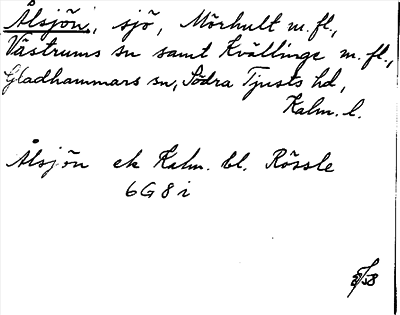 Ålsjön, sjö, Mörhult m. fl.,
Västrums sn samt Kvällinge m. fl.,
Gladhammars sn, Södra Tjusts hd,
Kalm. l.
Ålsjön ek Kalm. bl. Rössle
6G8i